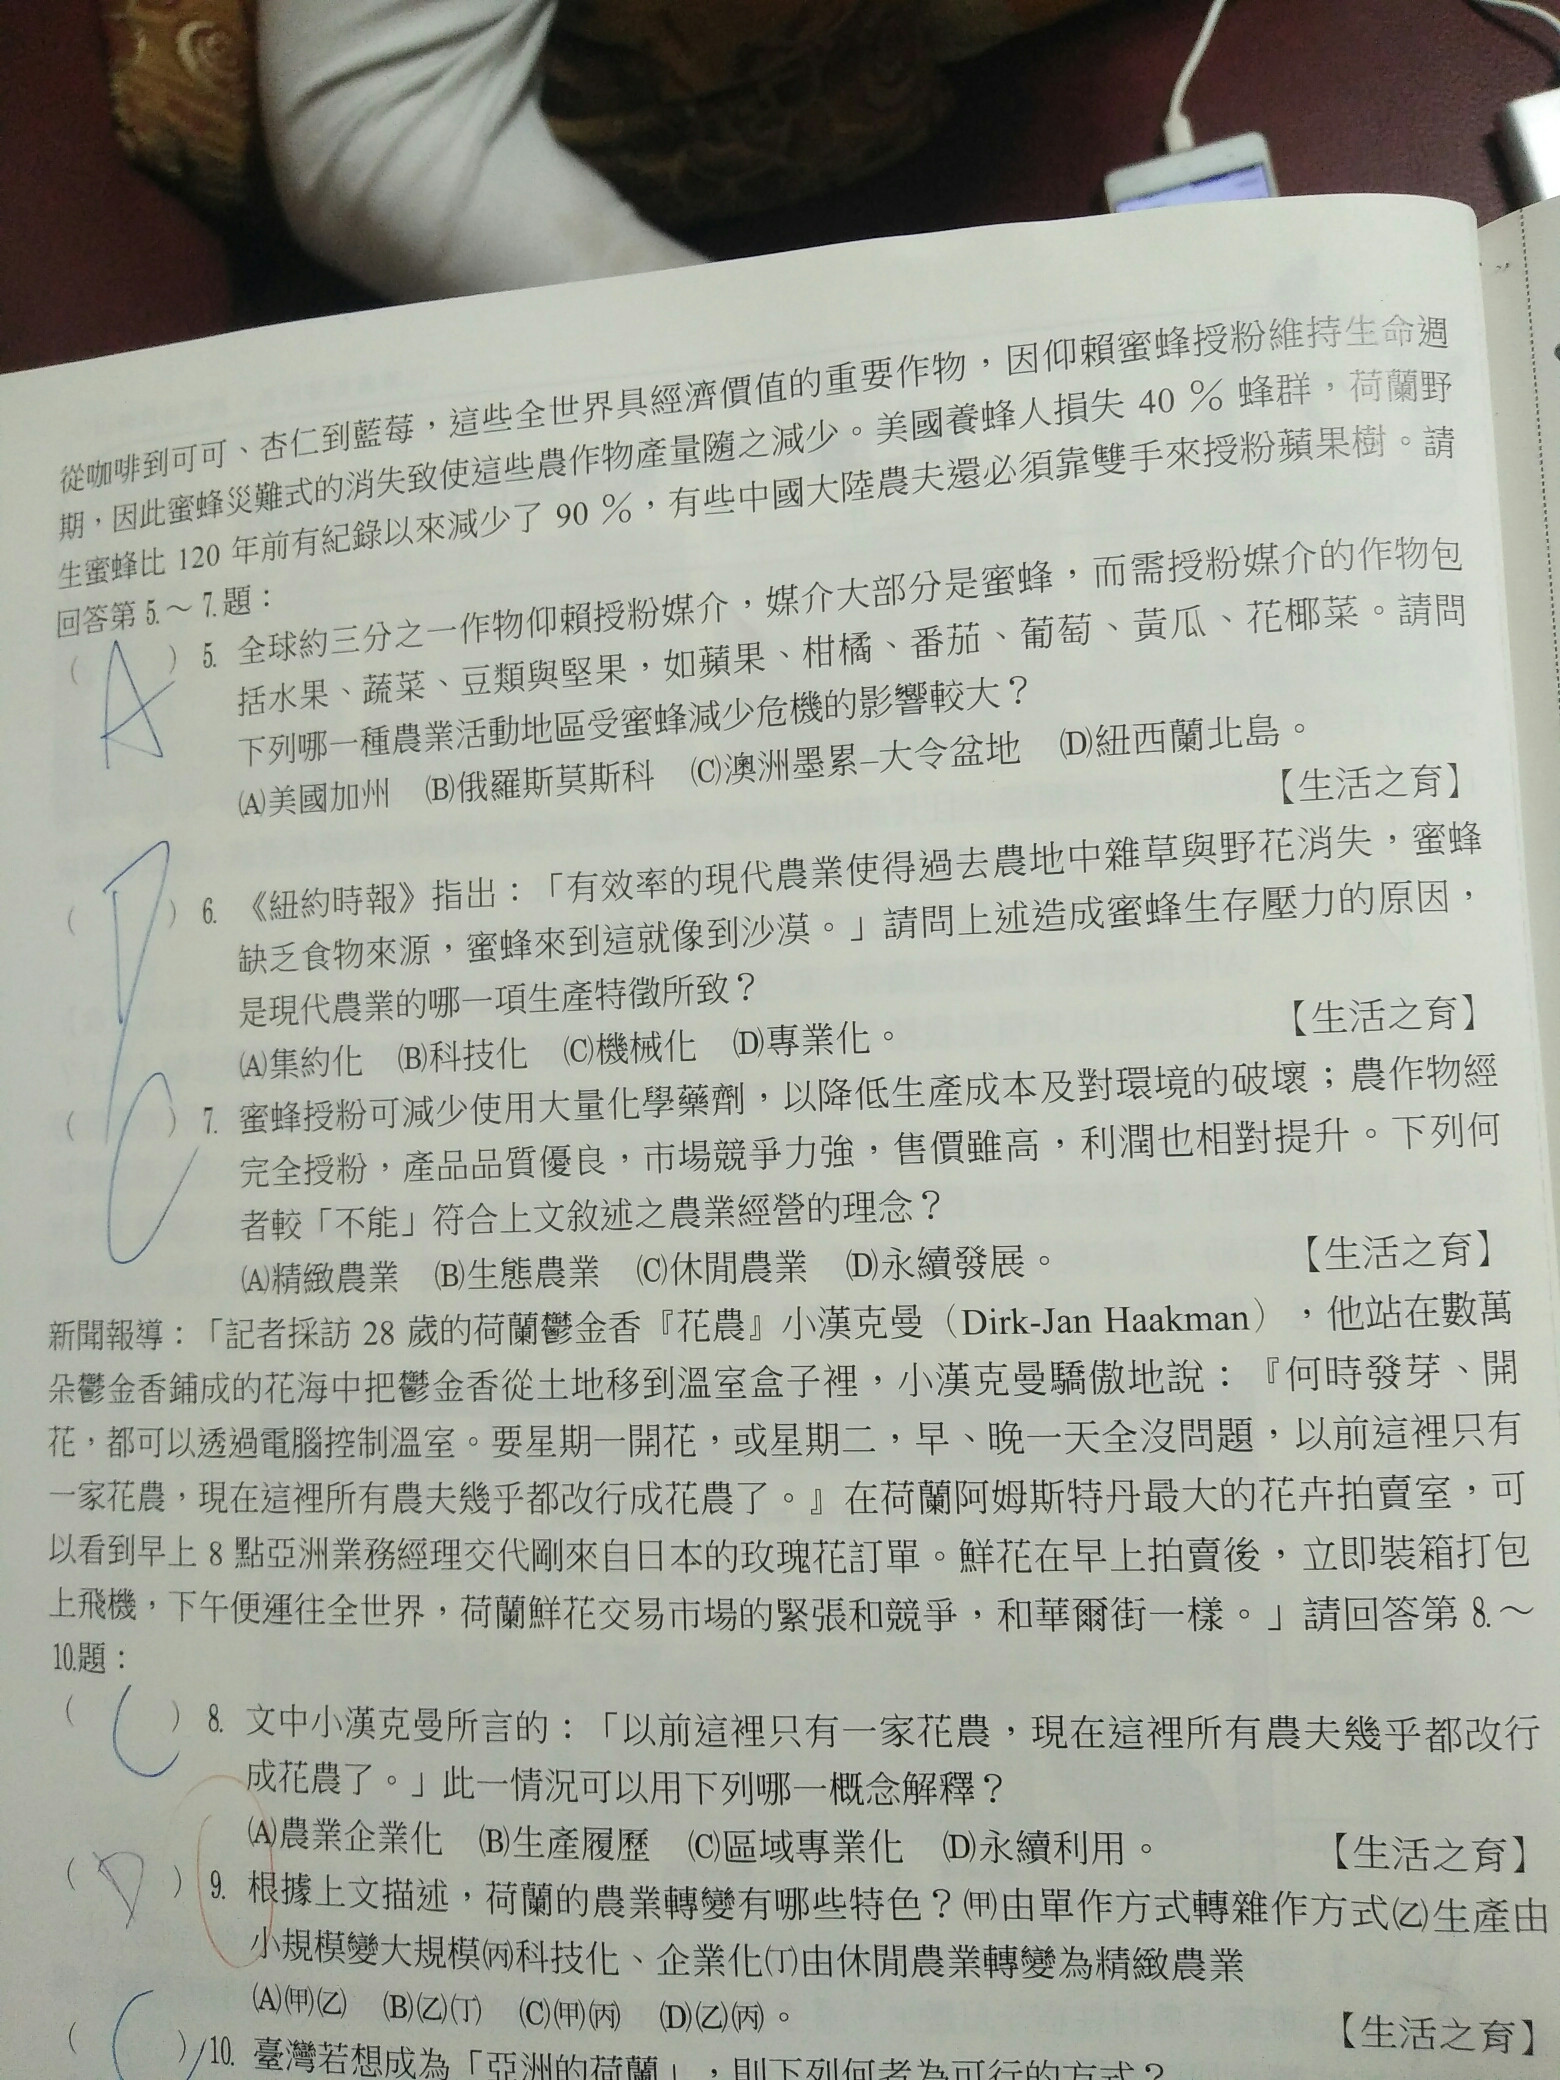 從咖啡到可可、杏仁到藍莓，這些全世界具經濟價值的重要作物，因仰賴蜜蜂授粉維持生命週
期，因此蜜蜂災難式的消失致使這些農作物產量隨之減少。美國養蜂人損失 40 % 蜂群，荷蘭野
生蜜蜂比 120 年前有紀錄以來減少了 90 %，有些中國大陸農夫還必須靠雙手來授粉蘋果樹。請
回答第 5.～7.題：
( A ) 5. 全球約三分之一作物仰賴授粉媒介，媒介大部分是蜜蜂，而需授粉媒介的作物包
括水果、蔬菜、豆類與堅果，如蘋果、柑橘、番茄、葡萄、黃瓜、花椰菜。請問
下列哪一種農業活動地區受蜜蜂減少危機的影響較大？
(A)美國加州 (B)俄羅斯莫斯科 (C)澳洲墨累–大令盆地 (D)紐西蘭北島。
【生活之育】
( D ) 6. 《紐約時報》指出：「有效率的現代農業使得過去農地中雜草與野花消失，蜜蜂
缺乏食物來源，蜜蜂來到這就像到沙漠。」請問上述造成蜜蜂生存壓力的原因，
是現代農業的哪一項生產特徵所致？
(A)集約化 (B)科技化 (C)機械化 (D)專業化。 【生活之育】
( C ) 7. 蜜蜂授粉可減少使用大量化學藥劑，以降低生產成本及對環境的破壞；農作物經
完全授粉，產品品質優良，市場競爭力強，售價雖高，利潤也相對提升。下列何
者較「不能」符合上文敘述之農業經營的理念？
(A)精緻農業 (B)生態農業 (C)休閒農業 (D)永續發展。 【生活之育】
新聞報導：「記者採訪 28 歲的荷蘭鬱金香『花農』小漢克曼（Dirk-Jan Haakman），他站在數萬
朵鬱金香鋪成的花海中把鬱金香從土地移到溫室盒子裡，小漢克曼驕傲地說：『何時發芽、開
花，都可以透過電腦控制溫室。要星期一開花，或星期二，早、晚一天全沒問題，以前這裡只有
一家花農，現在這裡所有農夫幾乎都改行成花農了。』在荷蘭阿姆斯特丹最大的花卉拍賣室，可
以看到早上 8 點亞洲業務經理交代剛來自日本的玫瑰花訂單。鮮花在早上拍賣後，立即裝箱打包
上飛機，下午便運往全世界，荷蘭鮮花交易市場的緊張和競爭，和華爾街一樣。」請回答第 8.～
10.題：
( C ) 8. 文中小漢克曼所言的：「以前這裡只有一家花農，現在這裡所有農夫幾乎都改行
成花農了。」此一情況可以用下列哪一概念解釋？
(A)農業企業化 (B)生產履歷 (C)區域專業化 (D)永續利用。 【生活之育】
( D ) 9. 根據上文描述，荷蘭的農業轉變有哪些特色？(甲)由單作方式轉雜作方式(乙)生產由
小規模變大規模(丙)科技化、企業化(丁)由休閒農業轉變為精緻農業
(A)(甲)(乙) (B)(乙)(丁) (C)(甲)(丙) (D)(乙)(丙)。 【生活之育】
( C ) 10. 臺灣若想成為「亞洲的荷蘭」，則下列何者為可行的方式？